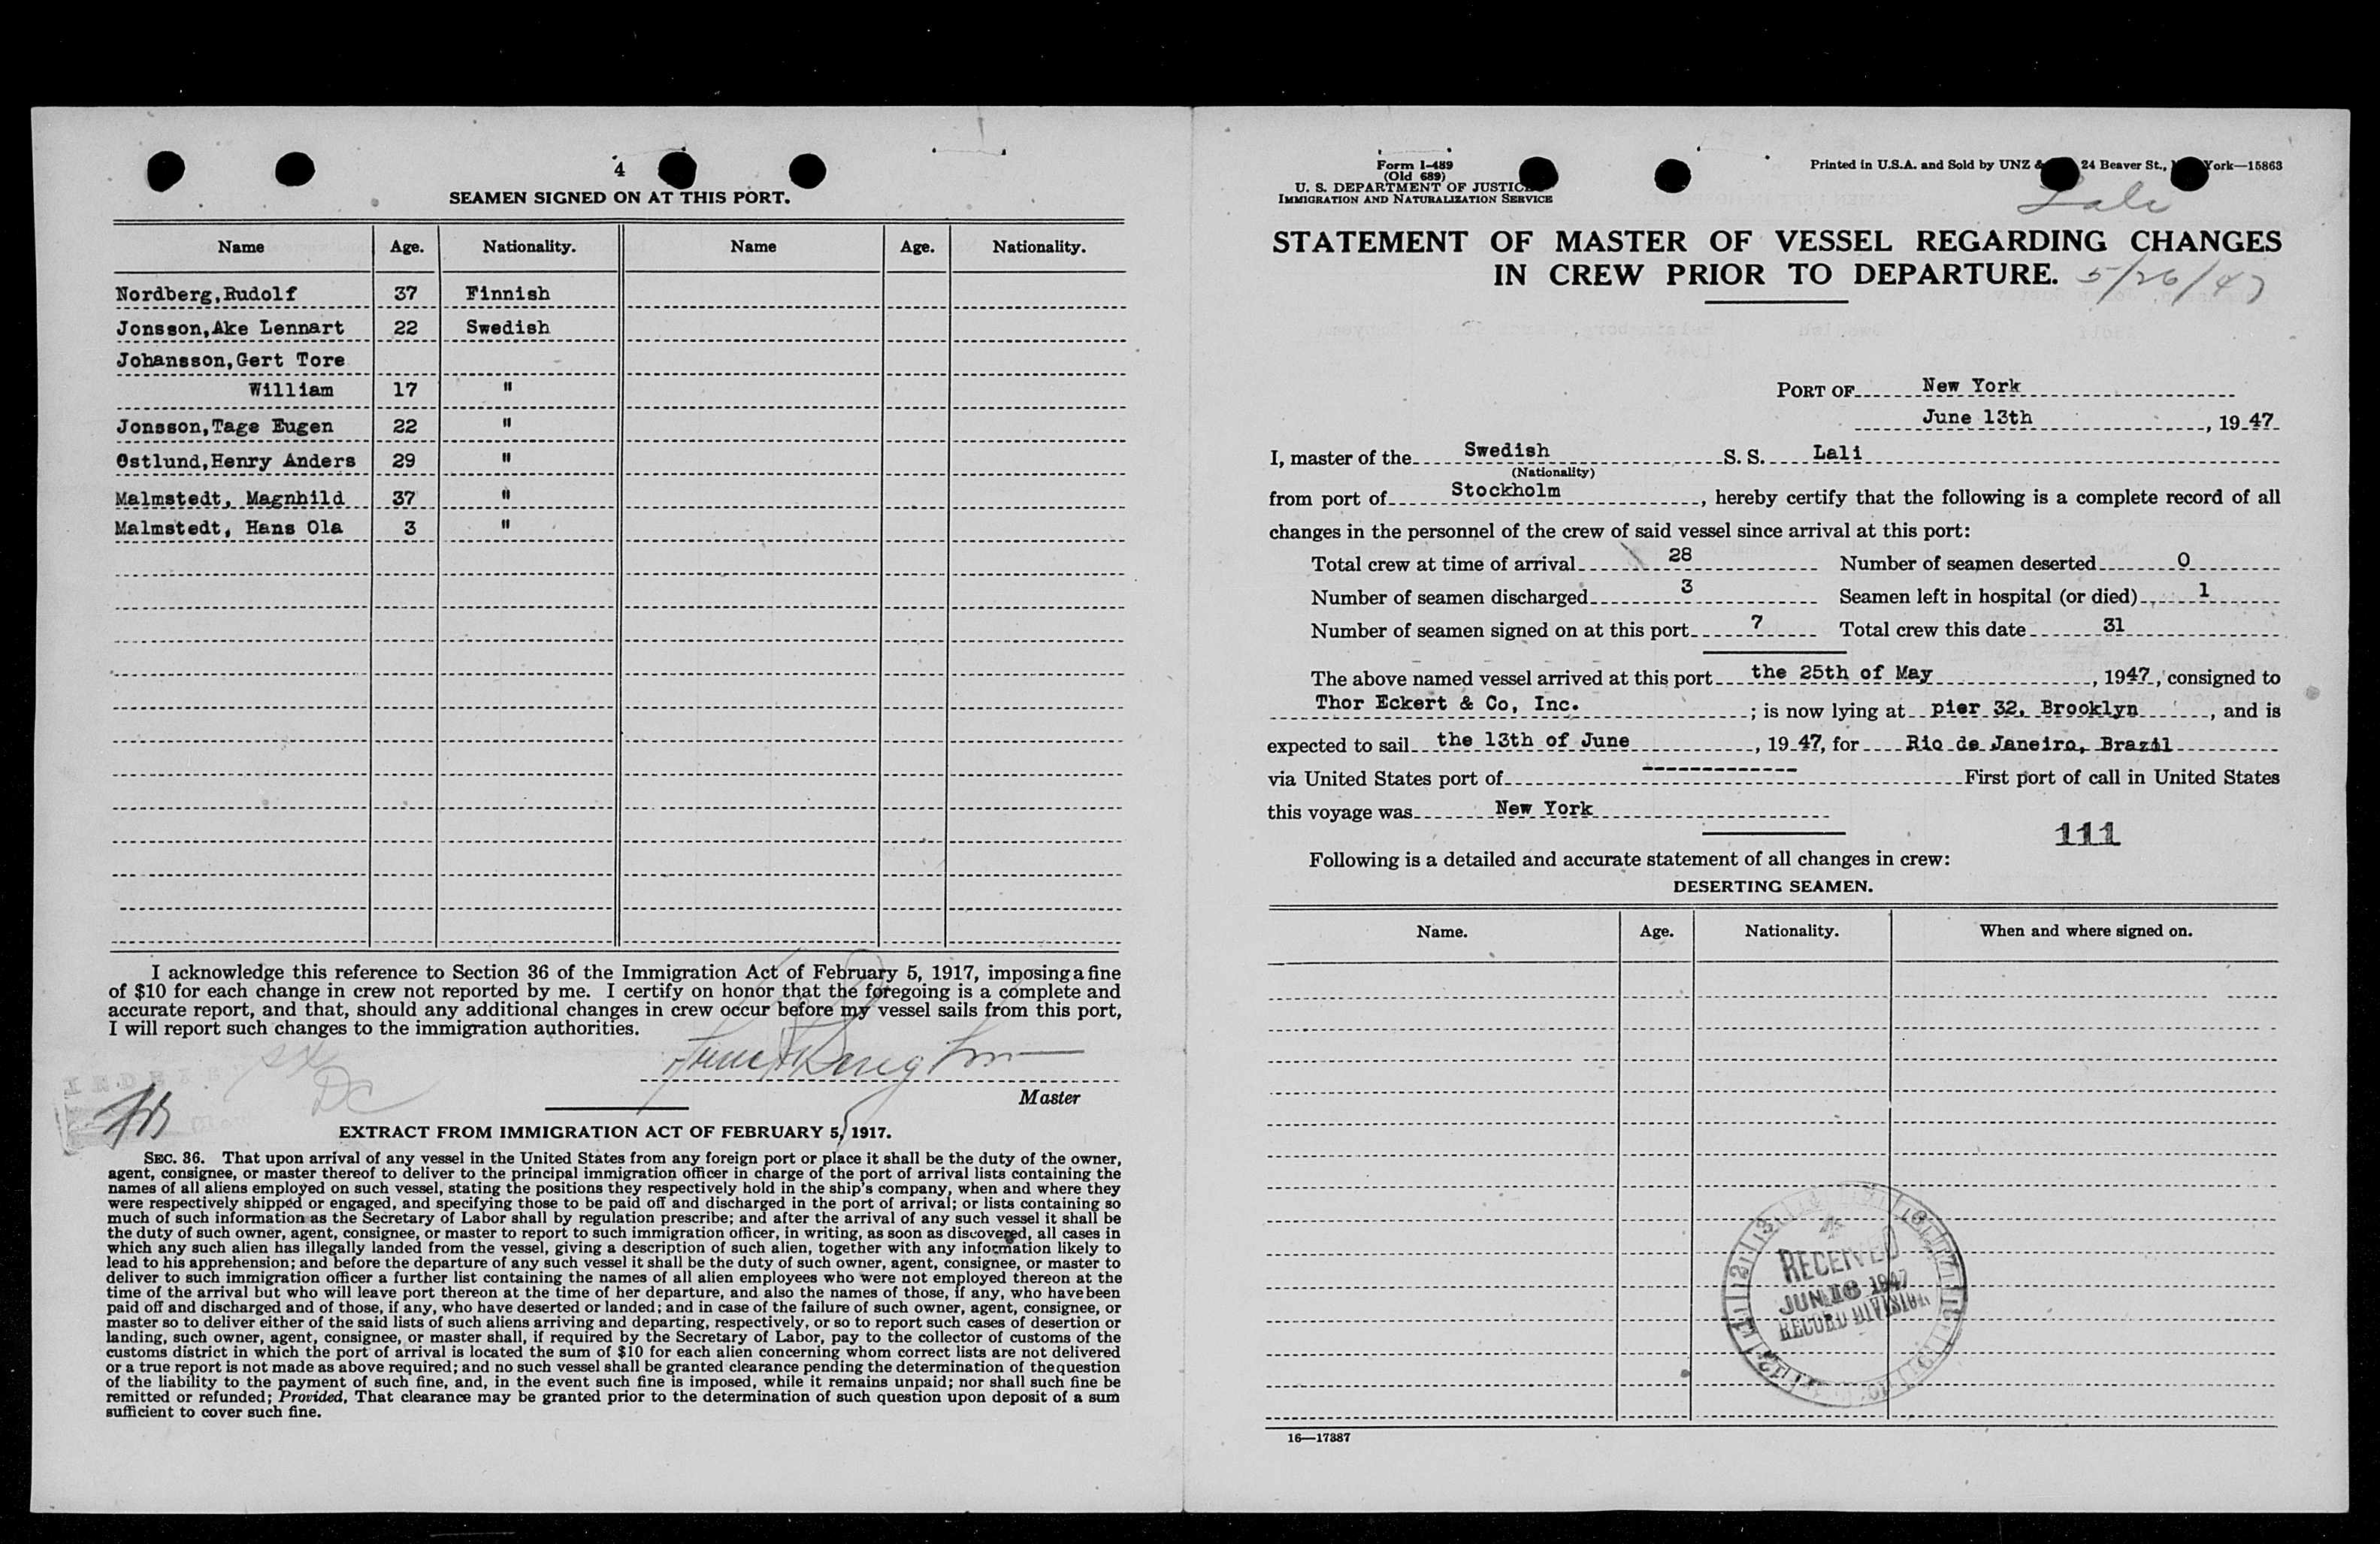 4
SEAMEN SIGNED ON AT THIS PORT.
Name Age. Nationality. Name Age. Nationality.
Nordberg,Rudolf 37 Finnish
Jonsson,Ake Lennart 22 Swedish
Johansson,Gert Tore
William 17 "
Jonsson,Tage Eugen 22 "
Ostlund,Henry Anders 29 "
Malmstedt, Magnhild 37 "
Malmstedt, Hans Ola 3 "
I acknowledge this reference to Section 36 of the Immigration Act of February 5, 1917, imposing a fine
of $10 for each change in crew not reported by me. I certify on honor that the foregoing is a complete and
accurate report, and that, should any additional changes in crew occur before my vessel sails from this port,
I will report such changes to the immigration authorities.
DC
Master
EXTRACT FROM IMMIGRATION ACT OF FEBRUARY 5, 1917.
SEC. 36. That upon arrival of any vessel in the United States from any foreign port or place it shall be the duty of the owner,
agent, consignee, or master thereof to deliver to the principal immigration officer in charge of the port of arrival lists containing the
names of all aliens employed on such vessel, stating the positions they respectively hold in the ship's company, when and where they
were respectively shipped or engaged, and specifying those to be paid off and discharged in the port of arrival; or lists containing so
much of such information as the Secretary of Labor shall by regulation prescribe; and after the arrival of any such vessel it shall be
the duty of such owner, agent, consignee, or master to report to such immigration officer, in writing, as soon as discovered, all cases in
which any such alien has illegally landed from the vessel, giving a description of such alien, together with any information likely to
lead to his apprehension; and before the departure of any such vessel it shall be the duty of such owner, agent, consignee, or master to
deliver to such immigration officer a further list containing the names of all alien employees who were not employed thereon at the
time of the arrival but who will leave port thereon at the time of her departure, and also the names of those, if any, who have been
paid off and discharged and of those, if any, who have deserted or landed; and in case of the failure of such owner, agent, consignee, or
master so to deliver either of the said lists of such aliens arriving and departing, respectively, or so to report such cases of desertion or
landing, such owner, agent, consignee, or master shall, if required by the Secretary of Labor, pay to the collector of customs of the
customs district in which the port of arrival is located the sum of $10 for each alien concerning whom correct lists are not delivered
or a true report is not made as above required; and no such vessel shall be granted clearance pending the determination of the question
of the liability to the payment of such fine, and, in the event such fine is imposed, while it remains unpaid; nor shall such fine be
remitted or refunded; Provided, That clearance may be granted prior to the determination of such question upon deposit of a sum
sufficient to cover such fine.
Form I-489
(Old 689)
U. S. DEPARTMENT OF JUSTICE
IMMIGRATION AND NATURALIZATION SERVICE
Printed in U.S.A. and Sold by UNZ & 24 Beaver St., York—15863
Lali
STATEMENT OF MASTER OF VESSEL REGARDING CHANGES
IN CREW PRIOR TO DEPARTURE. 5/26/47
PORT OF New York
June 13th, 1947
I, master of the Swedish S. S. Lali
(Nationality)
from port of Stockholm, hereby certify that the following is a complete record of all
changes in the personnel of the crew of said vessel since arrival at this port:
Total crew at time of arrival 28 Number of seamen deserted 0
Number of seamen discharged 3 Seamen left in hospital (or died) 1
Number of seamen signed on at this port 7 Total crew this date 31
The above named vessel arrived at this port the 25th of May, 1947, consigned to
Thor Eckert & Co, Inc. ; is now lying at pier 32, Brooklyn, and is
expected to sail the 13th of June, 1947, for Rio de Janeiro, Brazil
via United States port of ------------- First port of call in United States
this voyage was New York
111
Following is a detailed and accurate statement of all changes in crew:
DESERTING SEAMEN.
Name. Age. Nationality. When and where signed on.
RECEIVED
JUN 16 1947
RECORD DIVISION
16—17387